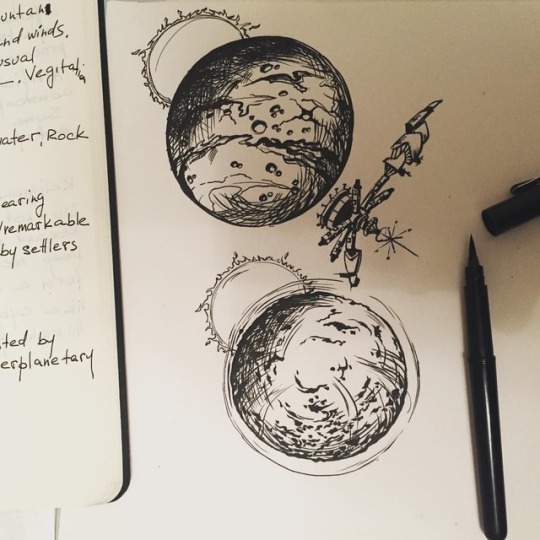 and winds.
usual
. Vegitatio
water, Rock
earing
/remarkable
by settlers
ted by
erplanetary